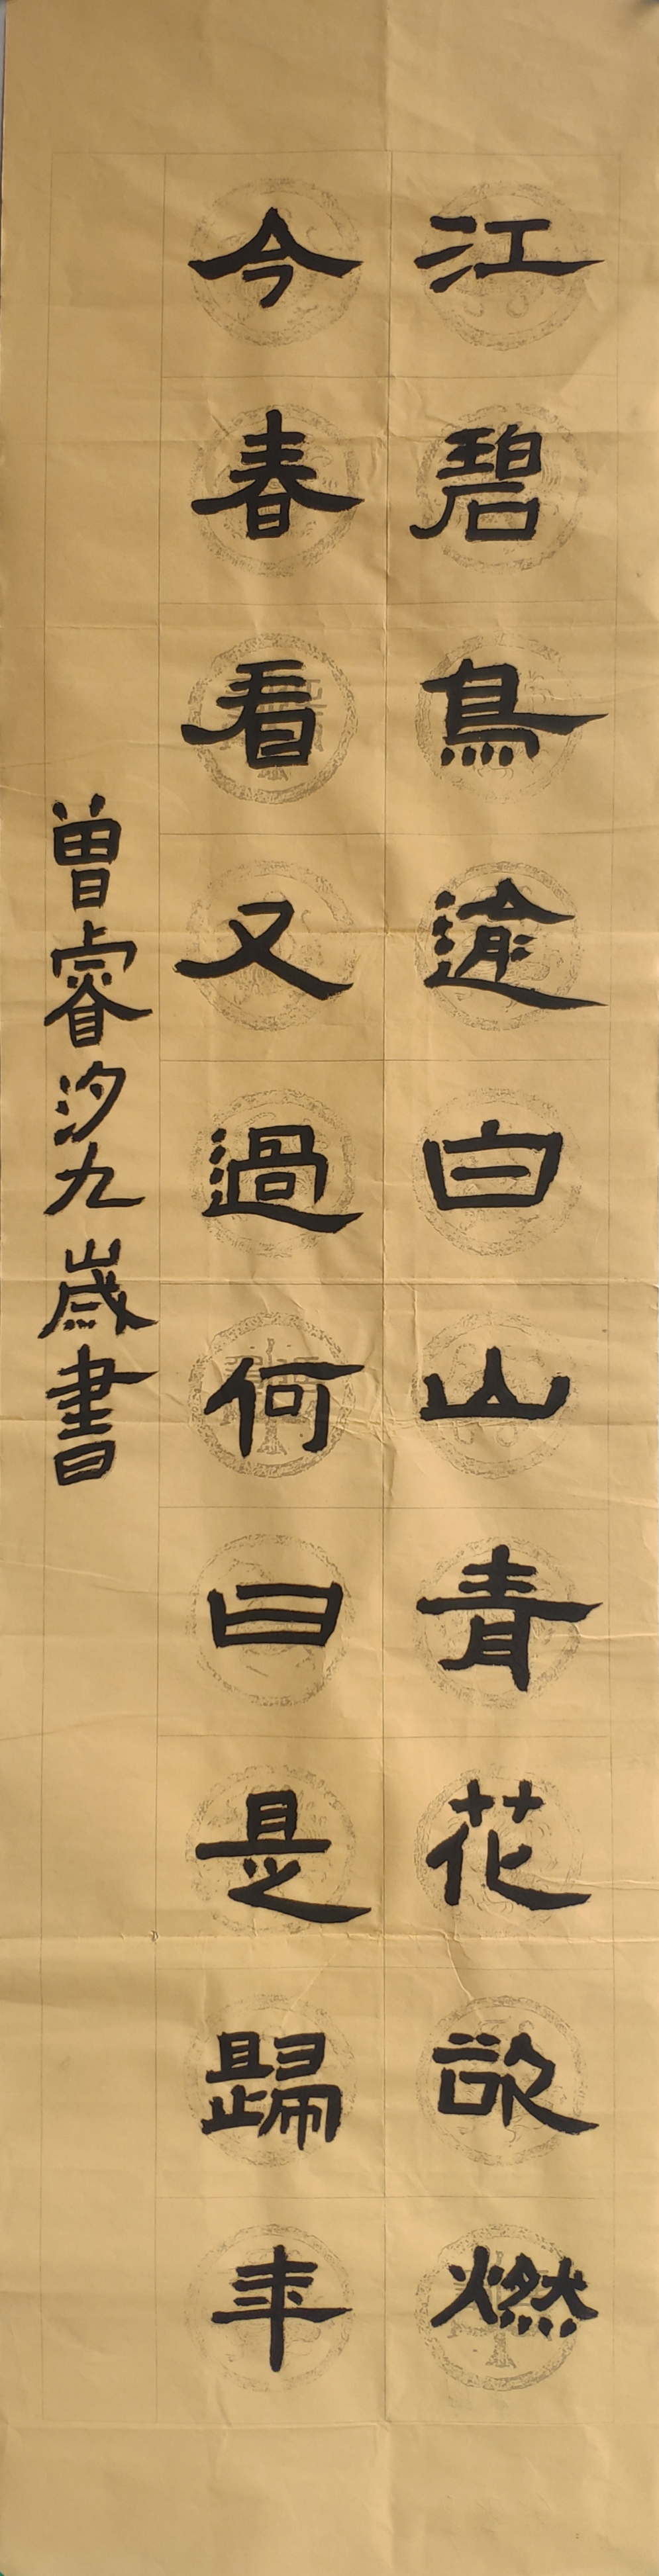 江碧鳥逾白山青花欲燃
今春看又過何日是歸年
曾睿汐九歲書